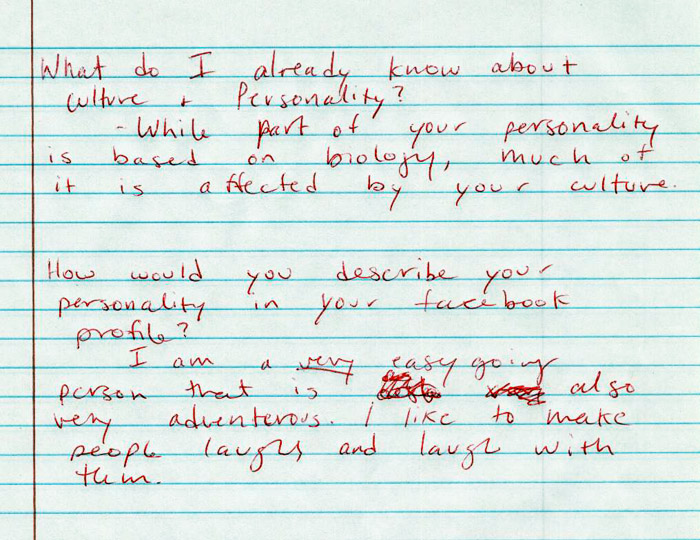 What do I already know about
culture + Personality?
- While part of your personality
is based on biology, much of
it is affected by your culture.
How would you describe your
personality in your facebook
profile?
I am a very easy going
person that is also
very adventerous. I like to make
people laughs and laugh with
them.